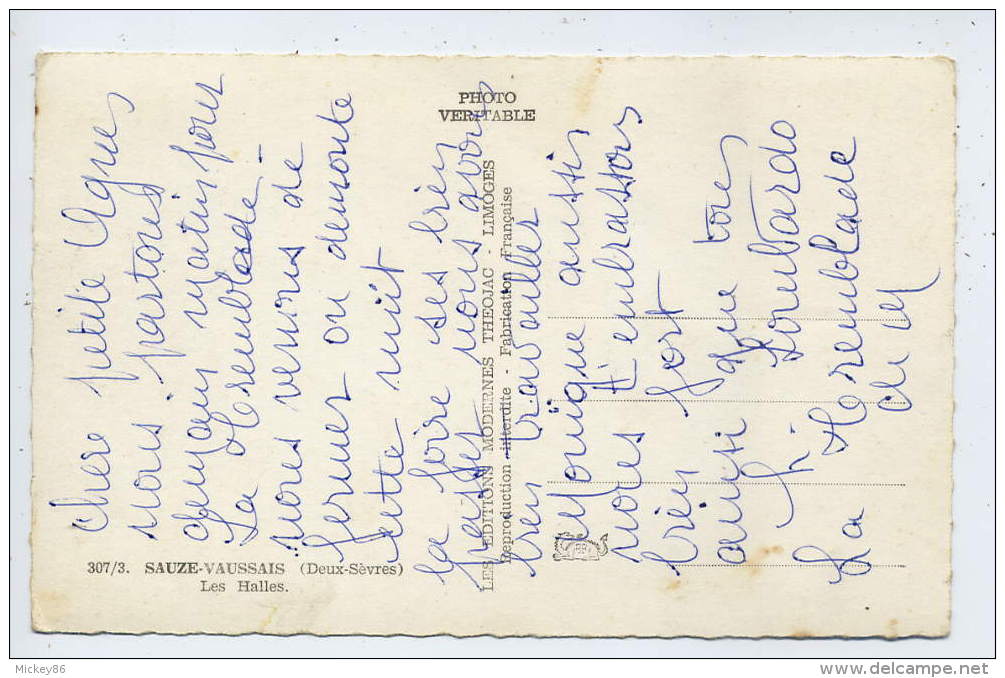 Chere petite Agnes
nous partons
demain matin pour
La Tremblade -
nous venons de
fermer on demonte
cette nuit
la foire ses bien
passer nous avons
bien travailler
Monique aussi
nous t'embrassons
bien fort
ainsi que tore
Lombardo
La Tremblade
ch M
PHOTO
VERITABLE
LES EDITIONS MODERNES THEOJAC - LIMOGES
Reproduction interdite - Fabrication Française
307/3. SAUZE-VAUSSAIS (Deux-Sèvres)
Les Halles.
Mickey86
delcampe.net